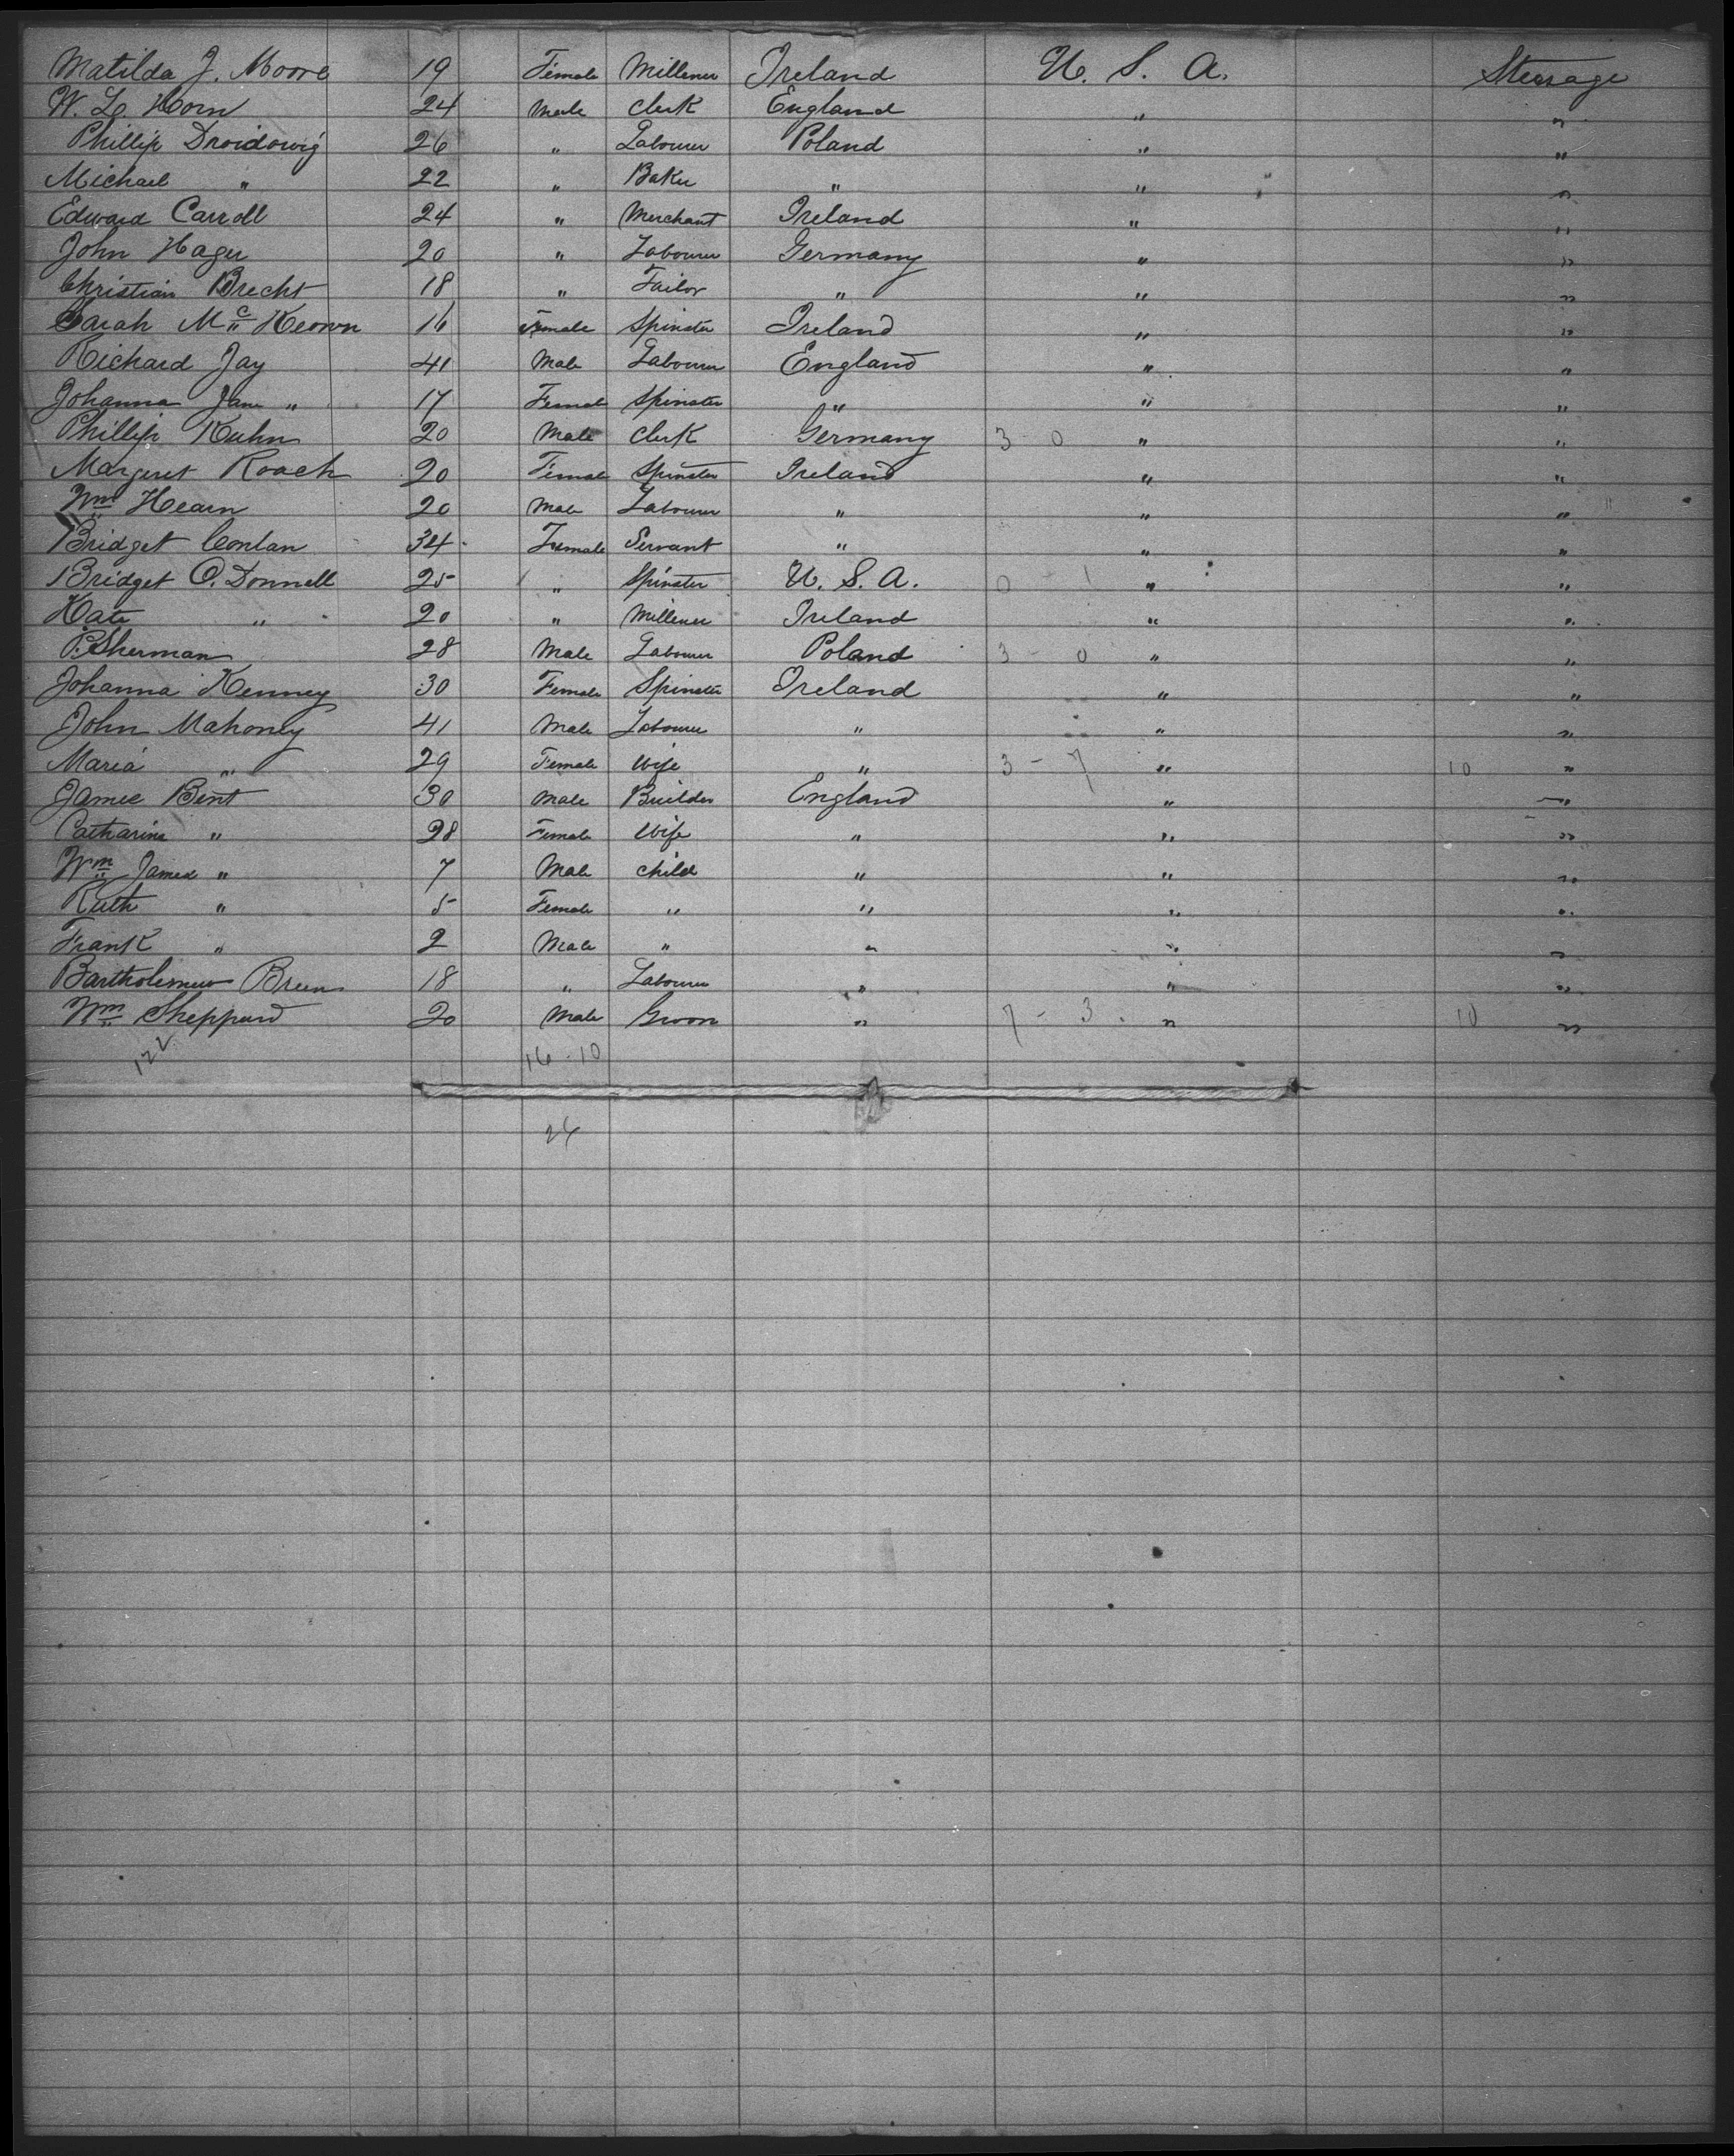 Matilda J. Moore 19 Female Millener Ireland U. S. A. Steerage
W. L. Horn 24 Male Clerk England " "
Phillip Droidowig 26 " Labourer Poland " "
Michael " 22 " Baker " " "
Edward Carroll 24 " Merchant Ireland " "
John Hager 20 " Labourer Germany " "
Christian Brecht 18 " Tailor " " "
Sarah Mc Keown 16 Female Spinster Ireland " "
Richard Jay 41 Male Labourer England " "
Johanna Jane " 17 Female Spinster " " "
Phillip Kuhn 20 Male Clerk Germany 3 - 0 " "
Margeret Roach 20 Female Spinster Ireland " "
Wm Hearn 20 Male Labourer " " "
Bridget Conlan 34 Female Servant " " "
Bridget O. Donnell 25 " Spinster U. S. A. 0 - 1 " "
Kate " 20 " Millener Ireland " "
P. Sherman 28 Male Labourer Poland 3 - 0 " "
Johanna Kenney 30 Female Spinster Ireland " "
John Mahoney 41 Male Labourer " " "
Maria " 29 Female Wife " 3 - 7 " 10 "
James Bent 30 Male Builder England " "
Catharine " 28 Female Wife " " "
Wm James " 7 Male Child " " "
Ruth " 5 Female " " " "
Frank " 2 Male " " " "
Bartholemew Breen 18 " Labourer " " "
Wm Sheppard 20 Male Groom " 7 - 3 " 10 "
122 16 - 10